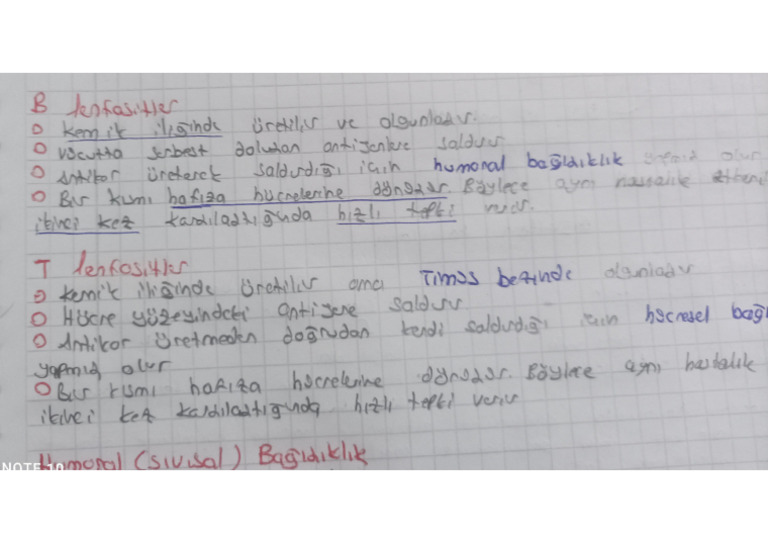 B lenfositler
o Kemik iliğinde üretilir ve olgunlaşır.
o vücutta serbest dolaşan antijenlere saldırır
o Antikor üreterek saldırdığı için humoral bağışıklık yapmış olur
o Bir kısmı hafıza hücrelerine dönüşür. Böylece aynı hastalık
ikinci kez karşılaştığında hızlı tepki verir.
T lenfositler
o Kemik iliğinde üretilir ama Timus bezinde olgunlaşır
o Hücre yüzeyindeki antijene saldırır
o Antikor üretmeden doğrudan kendi saldırdığı için hücresel bağı
yapmış olur
o Bir kısmı hafıza hücrelerine dönüşür. Böylece aynı hastalık
ikinci kez karşılaştığında hızlı tepki verir
Humoral (sıvısal) Bağışıklık
NOTE 10